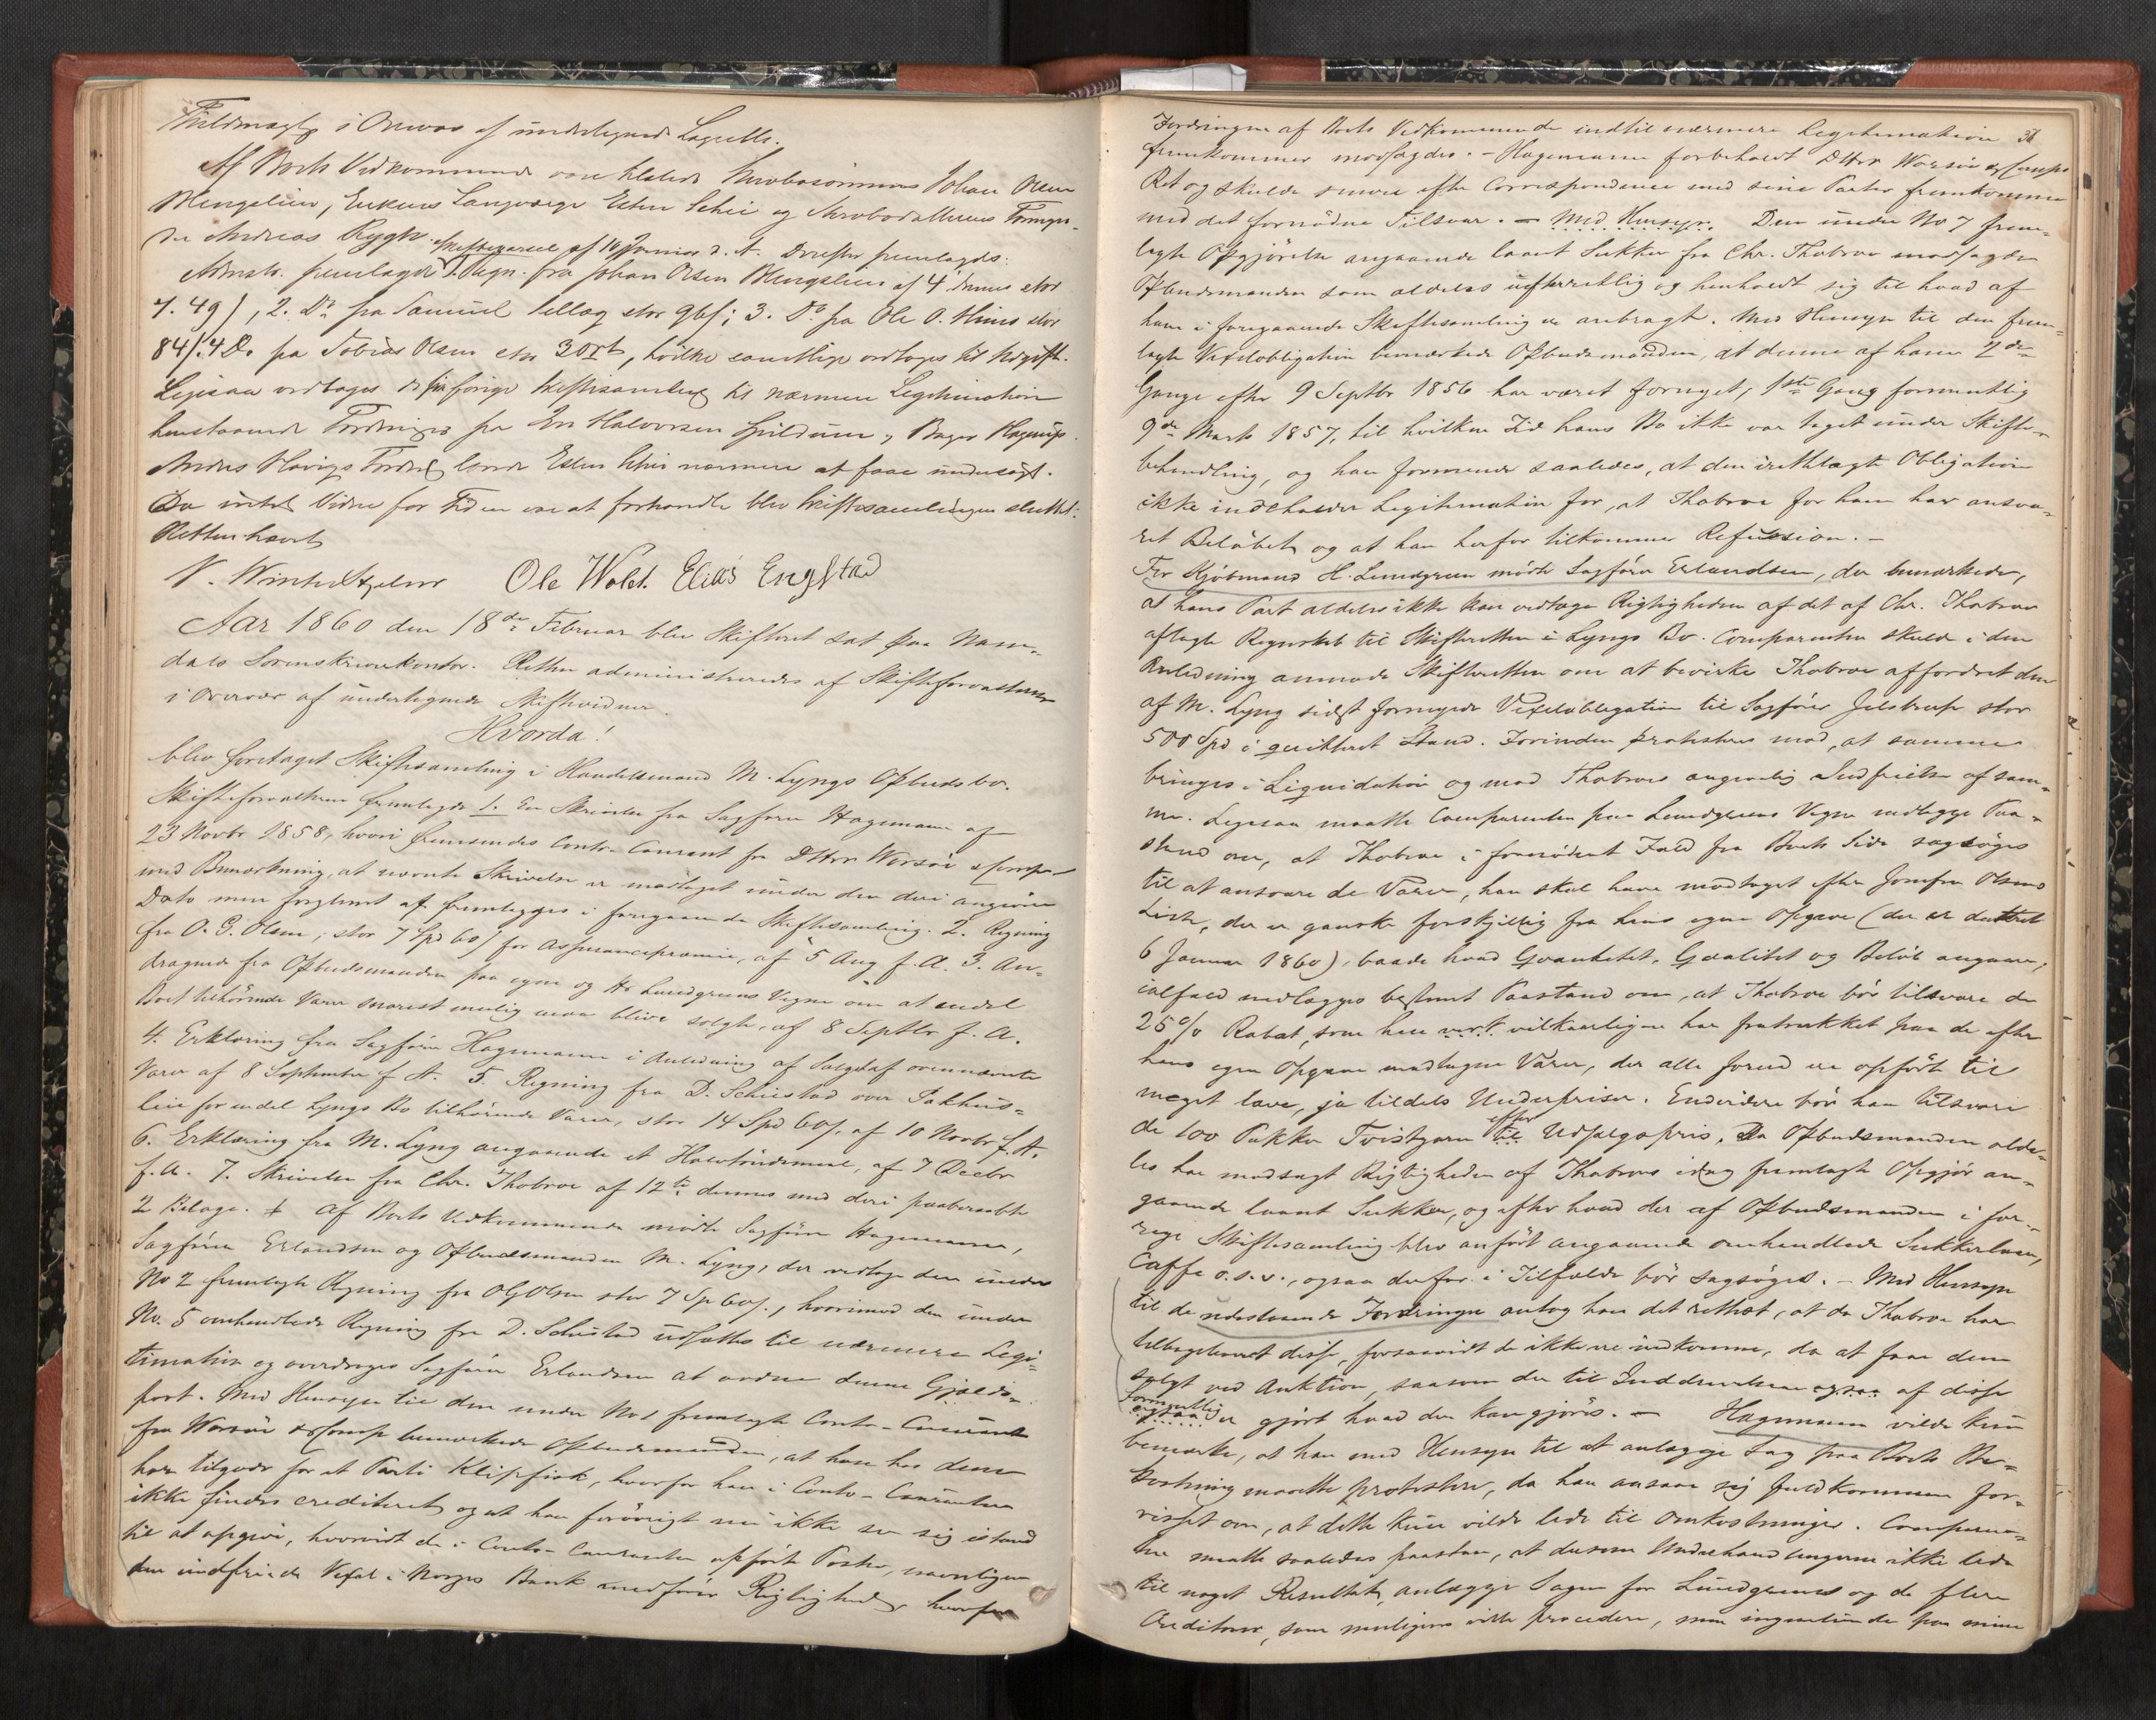 Fuldmægtig i Overvær af undertegnede Lagrette.
Af Boets Vedkommende vare tilstede Johan Olsen
Mengelien, Enkens Laugværge Esten Schei og Formyn-
der Andreas Rygh. Skiftevarsel af 16 Januar d. A. Derefter fremlagdes:
fremlagde 1. Regn. fra Johan Olsen Mengelien af 4 dennes stor
4. 49 s, 2. Do fra Samuel Sellæg stor 96 s; 3. Do fra Ole O. Himo stor
84 s. 4 Do fra Tobias Olsen stor 3 ort, hvilke samtlige vedtoges til Udgift.
Ligesaa vedtoges de fra forrige Skiftesamling til nærmere Legitimation
henstaaende Fordringer fra Halvorsen Spildum, Bager Hagerup.
Anders Havigs Fordring lovede Esten Schei nærmere at faae undersøgt.
Da intet Videre for Tiden var at forhandle blev Skiftesamlingen sluttet.
Retten hævet
Ole Wold. Elias Engstad
Aar 1860 den 18de Februar blev Skifteret sat paa Nam-
dals Sorenskriverkontor. Retten administreredes af Skifteforvalteren
i Overvær af undertegnede Skiftevidner.
Hvorda!
blev foretaget Skiftesamling i Handelsmand M. Lyngs Opbudsbo.
Skifteforvalteren fremlagde 1. En Skrivelse fra Sagfører Hagemann af
23 Novbr 1858, hvori fremsendes Conto-Courant fra DHrr Worsøe & Comp.
med Bemærkning, at nævnte Skrivelse er modtaget under den deri angivne
Dato men forglemt at fremlægges i foregaaende Skiftesamling. 2. Regning
fra O. G. Olsen, stor 7 Spd 60 s for Assurancepræmie, af 5 Aug f. A. 3. An-
dragende fra Opbudsmanden paa egne og Hr Lundgreens Vegne om at endel
Boet tilhørende Varer snarest mulig maa blive solgte, af 8 Septbr f. A.
4. Erklæring fra Sagfører Hagemann i Anledning af Salget af ovennævnte
Varer af 8 September f. A. 5. Regning fra D. Schiestad over Pakhus-
leie for endel Lyngs Bo tilhørende Varer, stor 14 Spd 60 s, af 10 Novbr f. A.
6. Erklæring fra M. Lyng angaaende et af 7 Decbr
f. A. 7. Skrivelse fra Chr. Thobroe af 12te dennes med deri paaberaabte
2 Bilage. + Af Boets Vedkommende mødte Sagfører Hagemann,
Sagfører Erlandsen og Opbudsmanden M. Lyng, der vedtoge den under
No 2 fremlagte Regning fra O G Olsen stor 7 Sp 60 s., hvorimod den under
No. 5 omhandlede Regning fra D. Schiestad udsattes til nærmere Legi-
timation og overdroges Sagfører Erlandsen at ordne denne Gjelds-
post. Med Hensyn til den under No 1 fremlagte Conto-Courant
fra Worsøe & Comp bemærkede Opbudsmanden, at han hos dem
har tilgode for et Parti Klipfisk, hvorfor han i Conto-Couranten
ikke findes crediteret og at han forøvrigt nu ikke ser sig istand
til at opgive, hvorvidt de i Conto-Couranten opførte Poster, navnligen
den indfriede Vexel i Norges Bank medfører Rigtighed, hvorfor
37
Fordringen af Boets Vedkommende indtil nærmere Legitimation
fremkommer modsagdes. - Hagemann forbeholdt DHrr Worsøe & Comps
Ret og skulde senere efter Correspondence med sine Parter fremkomme
med det fornødne Tilsvar. - Med Hensyn. Den under No 7 frem-
lagte Opgjørelse angaaende laant Sukker fra Chr. Thobroe modsagde
Opbudsmanden som aldeles uefterrettelig og henholdt sig til hvad af
ham i foregaaende Skiftesamling er anbragt. Med Hensyn til den frem-
lagte Vexelobligation bemærkede Opbudsmanden, at denne af ham 2de
Gange efter 9 Septbr 1856 har været fornyet, 1ste Gang formentlig
9de Marts 1857, til hvilken Tid hans Bo ikke var taget under Skifte-
behandling, og han formener saaledes, at den irettelagte Obligation
ikke indeholder Legitimation for, at Thobroe for ham har ansva-
ret Beløbet og at han herfor tilkommer Refusion. -
For Kjøbmand H. Lundgreen mødte Sagfører Erlandsen, der bemærkede,
at hans Part aldeles ikke kan vedtage Rigtigheden af det af Chr. Thobroe
aflagte Regnskab til Skifteretten i Lyngs Bo. Comparenten skulde i den
Anledning anmode Skifteretten om at bevirke Thobroe affordret den
af M. Lyng sidst fornyede Vexelobligation til Sagfører Jelstrup stor
500 Spd i qvitteret Stand. Forinden protesteres mod, at samme
bringes i Liqvidation og mod Thobroes angivelig Indfrielse af sam-
me. Ligesaa maatte Comparenten paa Lundgreens Vegne nedlægge Paa-
stand om, at Thobroe i fornødent Fald fra Boets Side sagsøges
til at ansvare de Varer, han skal have modtaget efter Jomfru Olsens
Liste, der er ganske forskjellig fra hans egen Opgave (der er dateret
6 Januar 1860), baade hvad Qvantitet, Qvalitet og Beløb angaaer,
ialfald nedlægges bestemt Paastand om, at Thobroe bør tilsvare de
25% Rabat, som han vilkaarligen har fratrukket paa de efter
hans egen Opgave modtagne Varer, der alle forud ere opført til
meget lave, ja tildels Underpriser. Endvidere bør han tilsvare
de 100 Pakker Tvistgarn efter Udsalgspris. Da Opbudsmanden alde-
les har modsagt Rigtigheden af Thobroes idag fremlagte Opgjør an-
gaaende laant Sukker, og efter hvad der af Opbudsmanden i for-
rige Skiftesamling blev anført angaaende omhandlede Sukkerlaan,
Caffe o.s.v., ogsaa derfor i Tilfælde bør sagsøges. - Med Hensyn
til de udestaaende Fordringer antog han det rettest, at da Thobroe har
tilbageleveret disse, forsaavidt de ikke ere indkomne, da at faae dem
solgt ved Auktion, saasom der til Inddrivelsen af disse
formentlig er gjort hvad der kan gjøres. - Hagemann vilde kun
bemærke, at han med Hensyn til at anlægge Sag paa Boets Be-
kostning maatte protestere, da han ansaae sig fuldkommen for-
visset om, at dette kun vilde lede til Omkostninger. Comparen-
ten maatte saaledes paastaa, at dersom Underhandlingerne ikke lede
til noget Resultat, anlægge Sagen for Lundgreens og de flere
Creditorer, som muligens ville procedere, men ingenlunde paa mine